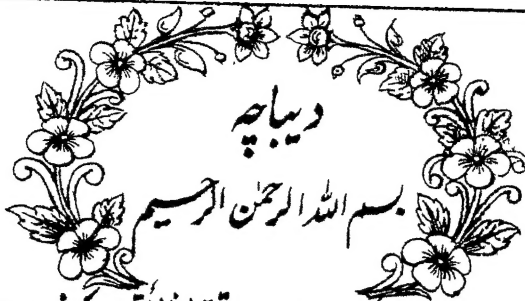 دیباچہ
بسم اللہ الرحمٰن الرحیم